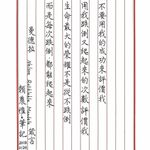 不要用我的成功來評價我
用我跌倒又爬起來的次數評價我
生命最大的榮耀不是從不跌倒
而是每次跌倒,都能爬起來
曼德拉 Nelson Rolihlahla Mandela 箴言